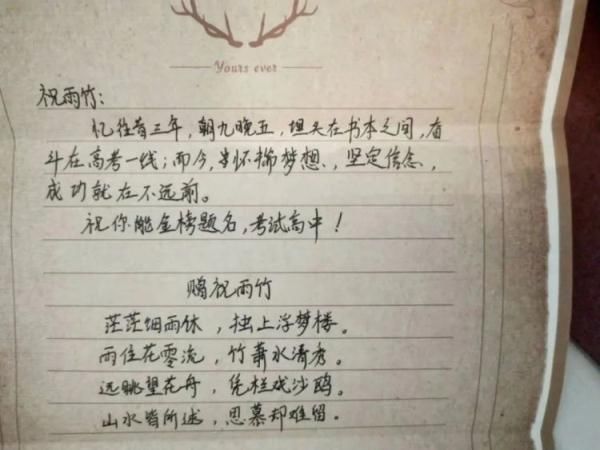 Yours ever
祝雨竹：
忆往昔三年，朝九晚五，埋头在书本之间，奋
斗在高考一线；而今，怀揣梦想，坚定信念，
成功就在不远前。
祝你能金榜题名，考试高中！
赠祝雨竹
茫茫烟雨休，独上浮梦楼。
雨住花零流，竹萧水清秀。
远眺望花舟，凭栏戏沙鸥。
山水皆所述，思慕却难留。